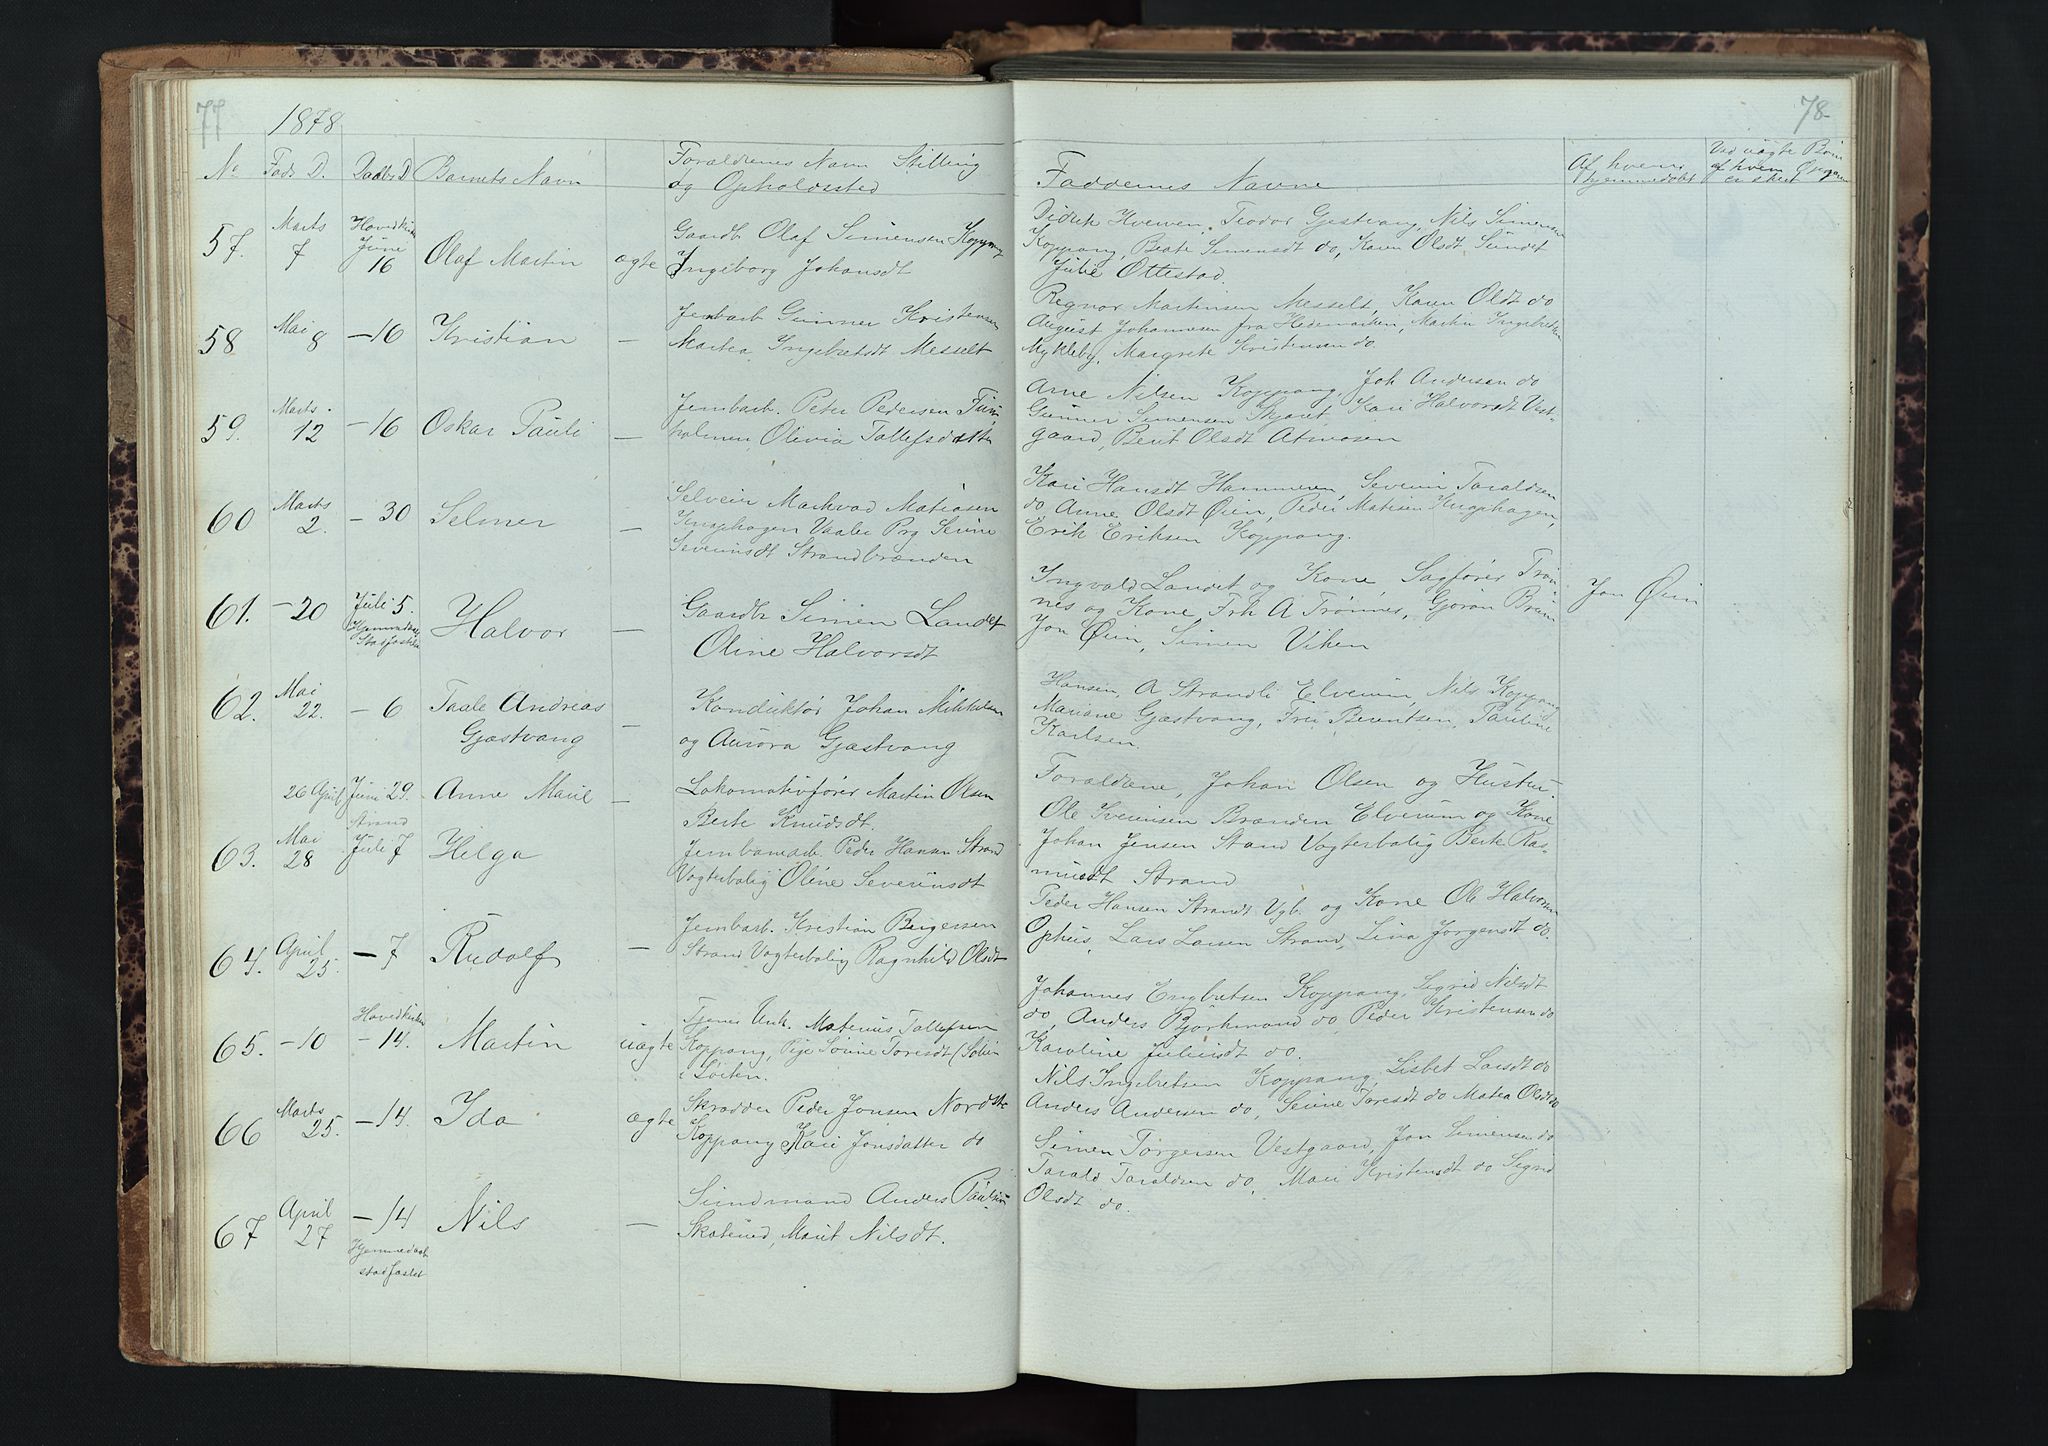 77
1878
78
No Føds D. Daabs D Barnets Navn Forældrenes Navn Stilling
og Opholdssted
Faddernes Navne
Af hvem
hjemmedøbt
Ved uægte Børn
af hvem
57. Marts
7
Hovedkirken
June
16
Olaf Martin ægte
Gaardb Olaf Simensen Koppang
Ingeborg Johansdt
Didrik Hverven, Teodor Gjestvang, Nils Simensen
Koppang, Beate Simensdt do, Karen Olsdt Sundet
Julie Ottestad.
58 Mai 8 – 16 Kristian –
Jernbarb Gunner Kristensen
Martea Ingebretsdt Messelt
Regnor Martinsen Messelt, Karen Olsdt do
August Johannesen fra Hedemarken, Martin Ingebretsen
Mykleby, Margrete Kristensen do.
59. Marts
12 – 16 Oskar Pauli –
Jernbarb. Peter Pedersen
holmen, Olivia Tollefsdatter
Arne Nilsen Koppang, Joh Andersen do
Gunner Simensen Skjæret, Kari Halvorsdt Vest-
gaard, Berit Olsdt Atmosen
60 Marts
2. – 30 Selmer –
Selveier Markvad Matiasen
Knaphagen Vaaler Prg Serine
Severinsdt Strandbrænden
Kari Hansdt Hammeren, Severin Taraldsen
do Anne Olsdt Øien, Peder Matisen Knaphagen,
Erik Eriksen Koppang.
61. – 20 Juli 5.
Hjemmedaab
Stadfæstelse
Halvor –
Gaardb Simen Landet
Oline Halvorsdt
Ingvald Landet og Kone, Sagfører Trøn-
nes og Kone, Frk A Trønnes, Gjøran Brun
Jon Øien, Simen Viken
Jon Øien
62. Mai
22. – 6 Taale Andreas
Gjæstvang –
Konduktør Johan Mikkelsen
og Aurora Gjæstvang
Hansen, A Strandli Elverum, Nils Koppang
Mariane Gjæstvang, Fru Berentsen, Pauline
Karlsen.
26 April Juni 29. Anne Marie –
Lokomotivfører Martin Olsen
Berte Knudsdt.
Forældrene, Johan Olsen og Hustru.
63. Mai
28 Strand
Juli 7 Helga
Jernbanearb. Peder Hansen Strand
Vogterbolig Oline Severinsdt
Ole Iversen Brænden Elverum og Kone
Johan Jensen Stand Vogterbolig Berte Ras-
musdt Strand
64. April
25. – 7 Rudolf –
Jernbarb. Kristian Birgersen
Strand Vogterbolig Ragnhild Olsdt
Peder Hansen Strandt Vgb. og Kone Ole Halvorsen
Ophus, Lars Larsen Strand, Lina Jørgensdt do.
65. – 10 Hovedkirken
– 14. Martin uægte
Tjener Unk. Matenius Tollefsen
Koppang, Pige Sørine Toresdt
i Løiten.
Johannes Engbretsen Koppang, Sigrid Nilsdt
do, Anders Bjørkmand do, Peder Kristensen do
Karoline Juliusdt do.
66 Marts
25. – 14. Ida ægte
Skrædder Peder Jonsen Nordstu
Koppang Kari Jonsdatter do
Nils Ingebretsen Koppang, Lisbet Larsdt do
Anders Andersen do, Serine Toresdt do Matea Olsdt do
67 April
27 – 14
Hjemmedaab
stadfæstet
Nils –
Sundmand Anders Paulsen
Skaterud, Marit Nilsdt.
Simen Torgersen Vestgaard, Jon Simensen do
Tarald Taraldsen do, Mari Kristensdt do Sigrid
Olsdt do.